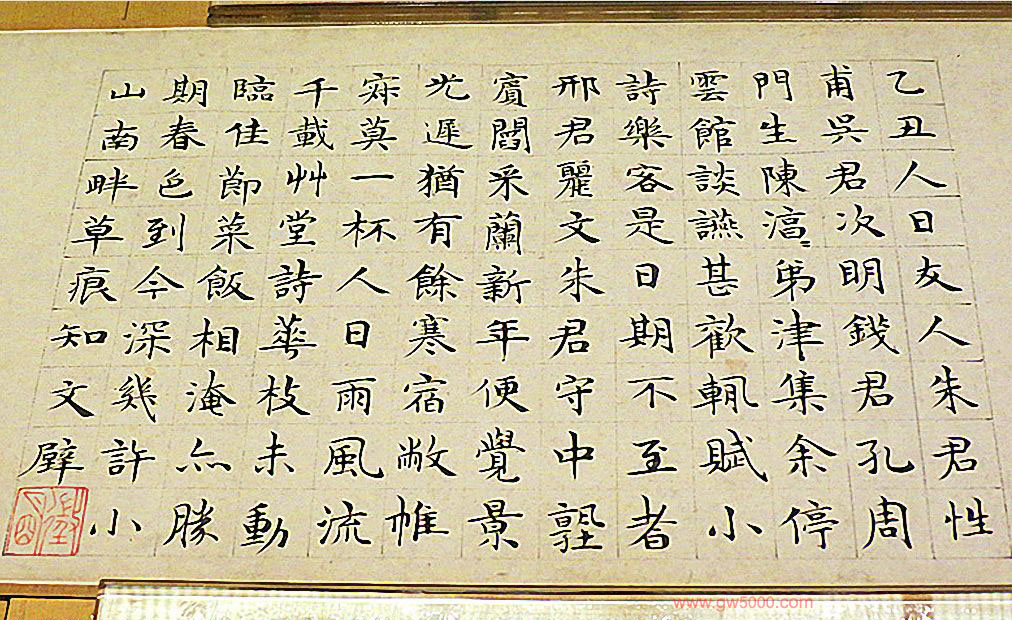 乙丑人日友人朱君性
甫吳君次明錢君孔周
門生陳淳弟津集余停
雲館談讌甚歡輒賦小
詩樂客是日期不至者
邢君麗文朱君守中塾
賓閻采蘭新年便覺景
光遲猶有餘寒宿敝帷
寂莫一杯人日雨風流
千載艸堂詩華枝未動
臨佳節菜飯相淹亦勝
期春色到今深幾許小
山南畔草痕知文壁
www.gw5000.com